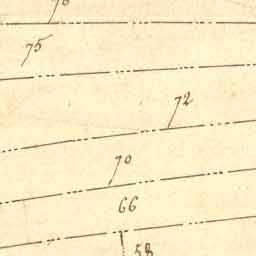 75
72
70
66
58